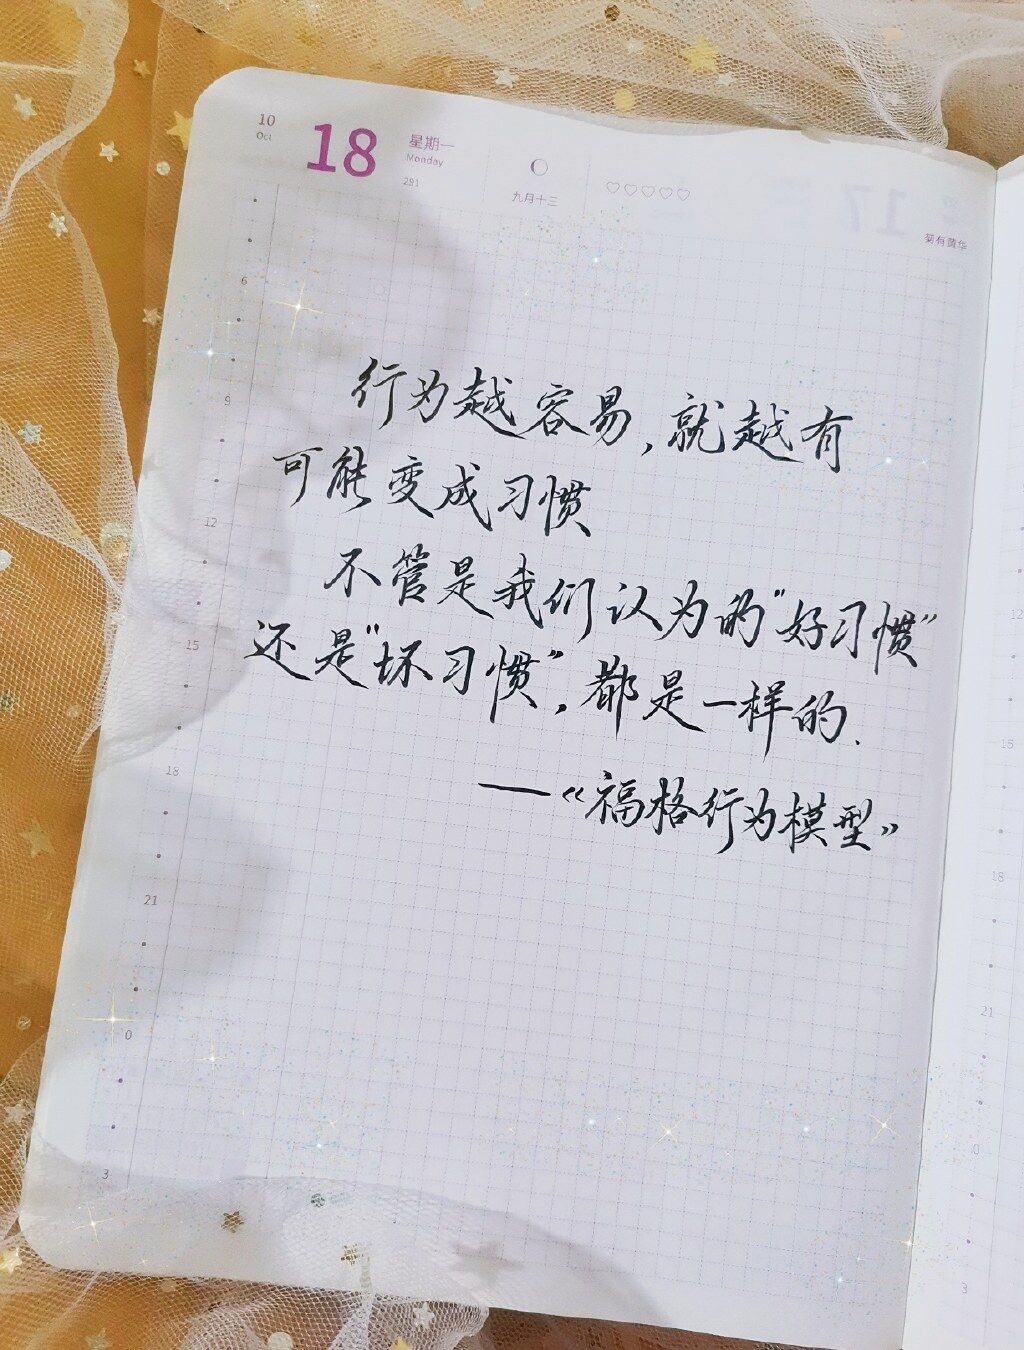 10
Oct
18
星期一
Monday
291
九月十三
菊有黄华
17
6
9
12
15
18
21
0
3
行为越容易,就越有
可能变成习惯
不管是我们认为的"好习惯"
还是"坏习惯",都是一样的.
—《福格行为模型》
12
15
18
21
0
3